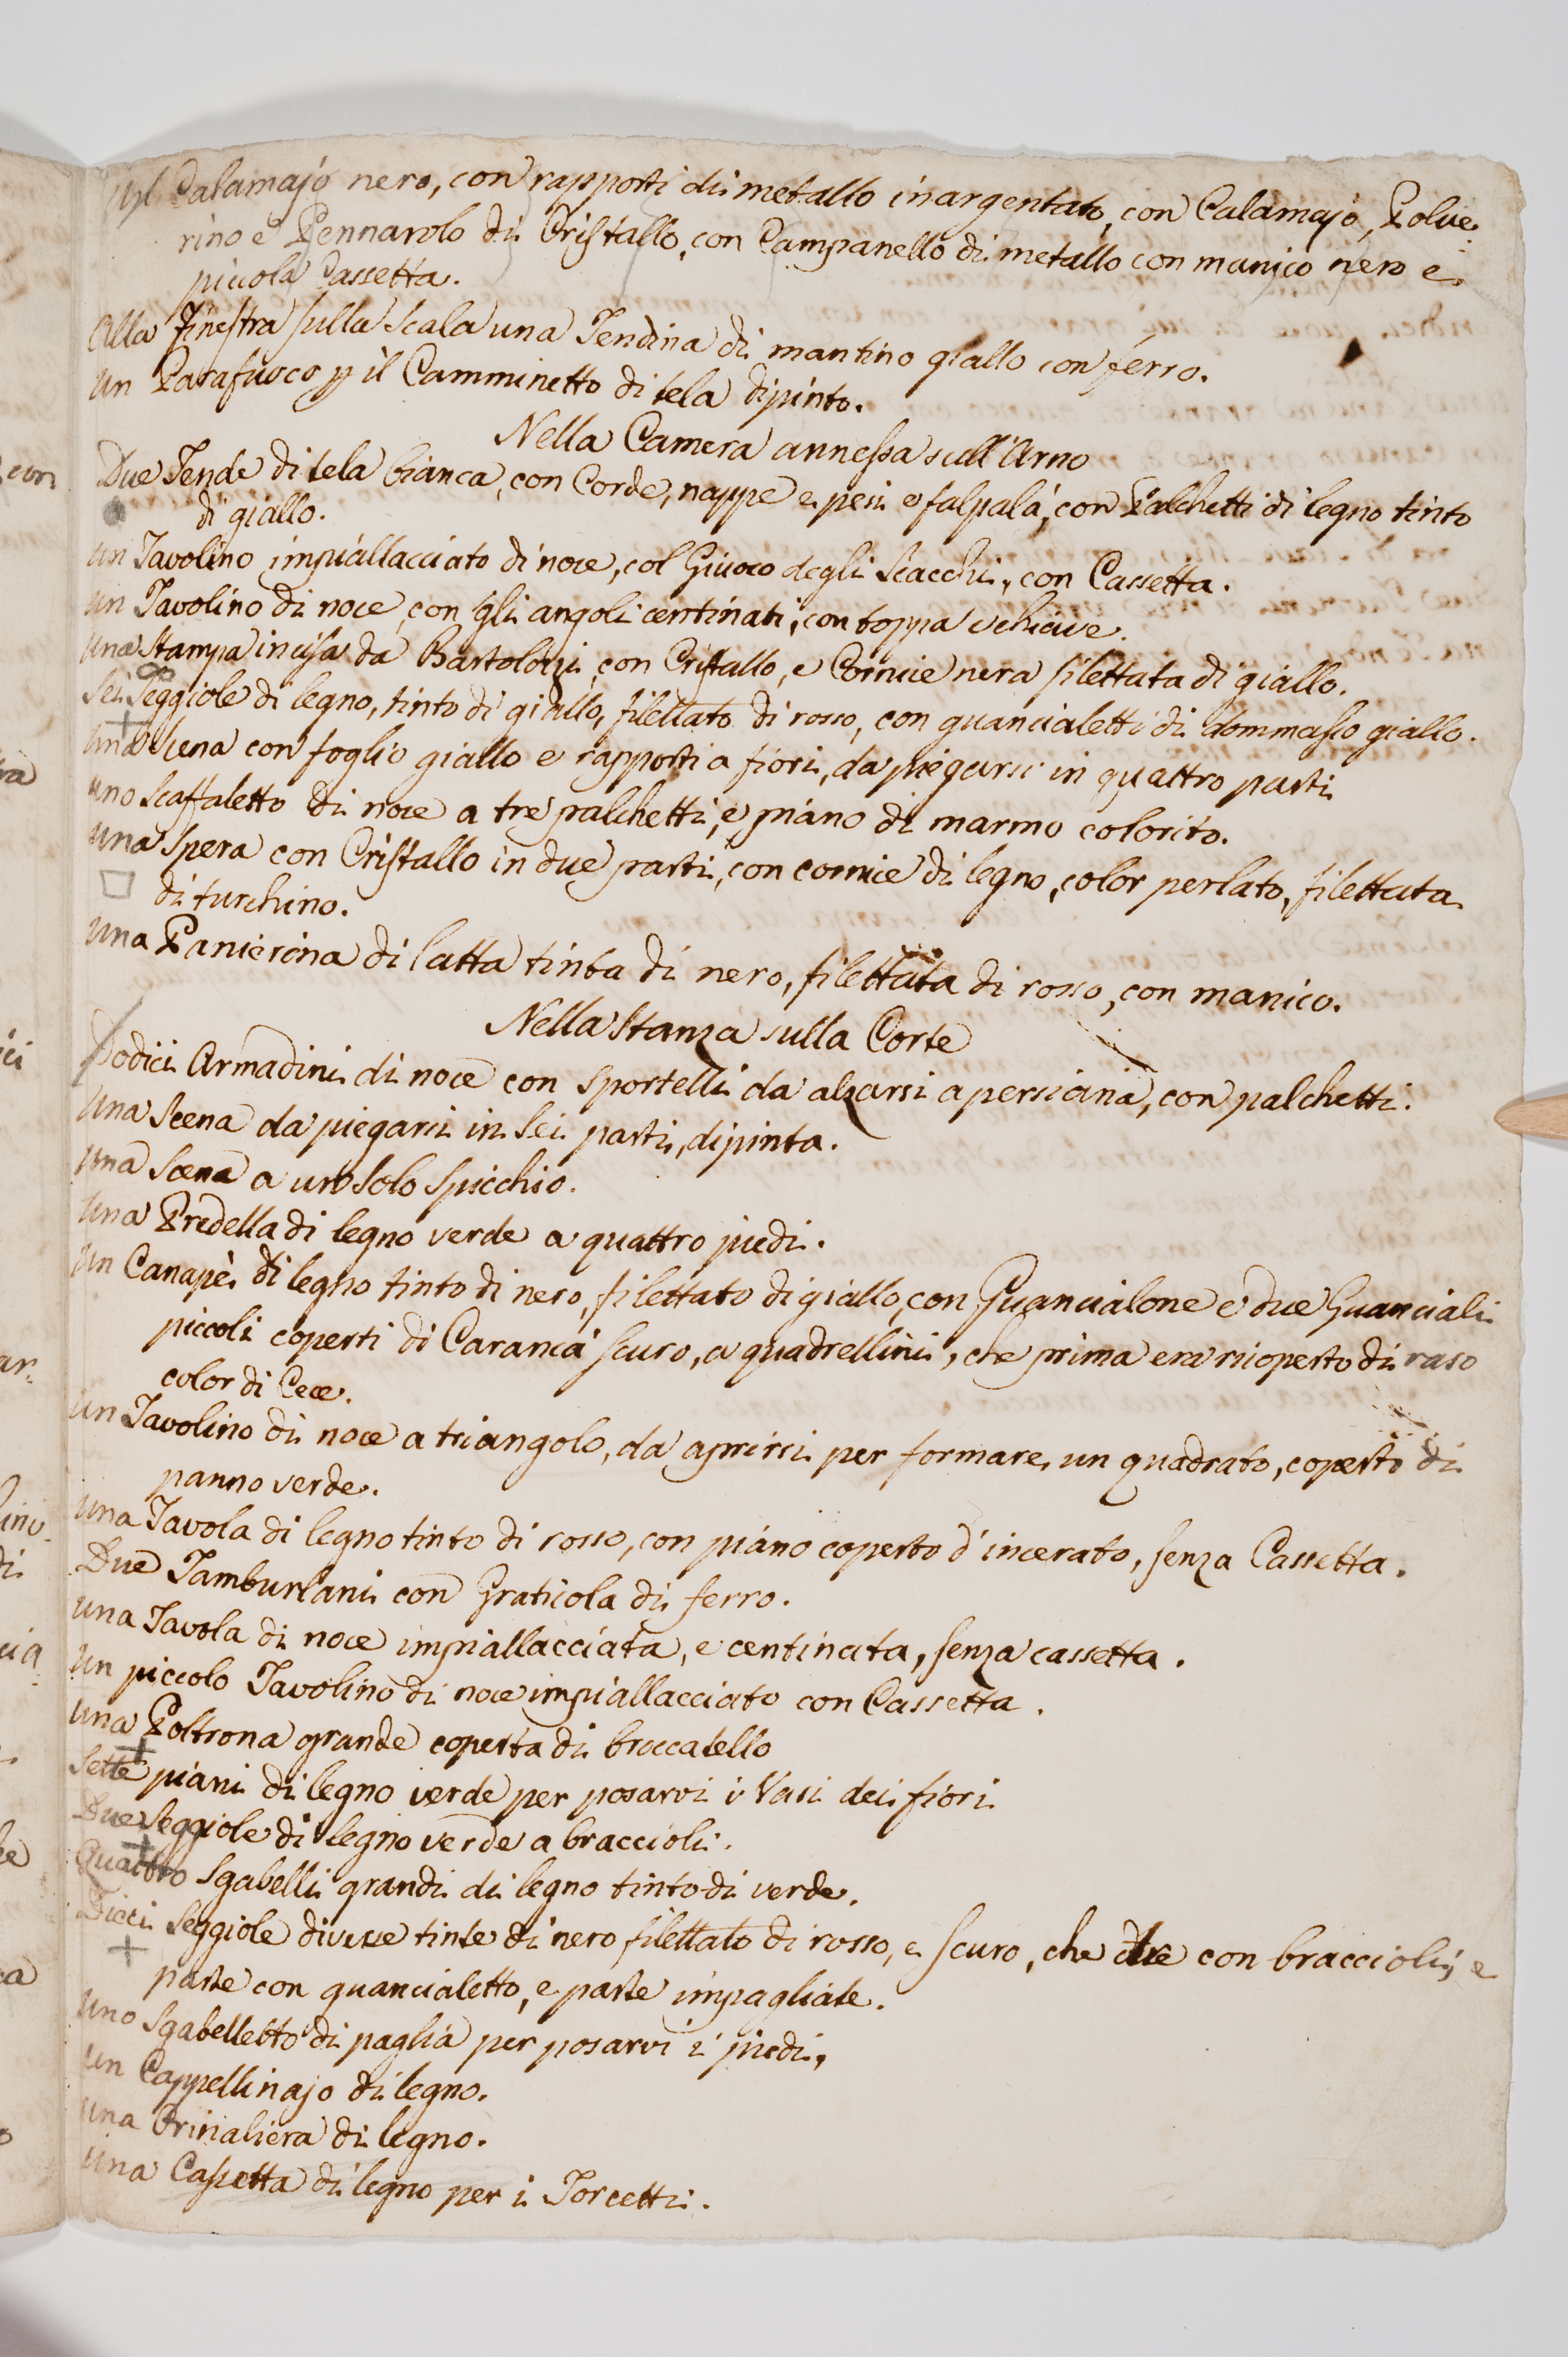 Un Calamajo nero, con rapporti di metallo inargentato, con Calamajo, Polve
rino e Pennarolo di Cristallo, con Campanello di metallo con manico nero e
piccola Cassetta.
Alla Finestra sulla Scala una Tendina di mantino giallo con ferro.
Un Parafuoco p il Camminetto di tela dipinto.
Nella Camera annessa sull'Arno
Due Tende di tela bianca, con Corde, nappe e pesi e falpalà, con Palchetti di legno tinto
di giallo.
Un Tavolino impiallacciato di noce, col Giuoco degli Scacchi, con Cassetta.
Un Tavolino di noce, con gli angoli centinati, con toppa e chiave.
Una Stampa incisa da Bartolozzi, con Cristallo, e Cornice nera filettata di giallo.
Sei Seggiole di legno, tinto di giallo, filettato di rosso, con guancialetti di dommasco giallo.
Una Scena con foglio giallo e rapporti a fiori, da piegarsi in quattro parti
Uno Scaffaletto di noce a tre palchetti, e piano di marmo colorito.
Una Spera con Cristallo in due parti, con cornice di legno, color perlato, filettata
di turchino.
Una Panierina di latta tinta di nero, filettata di rosso, con manico.
Nella Stanza sulla Corte
Dodici Armadini di noce con sportelli da alzarsi a persiana, con palchetti.
Una Scena da piegarsi in Sei parti, dipinta.
Una Scena a un Solo Spicchio.
Una Predella di legno verde a quattro piedi.
Un Canapè di legno tinto di nero, filettato di giallo, con Guancialone e due Guanciali
piccoli coperti di Carancà scuro, a quadrellini, che prima era ricoperto di raso
color di Cece.
Un Tavolino di noce a triangolo, da aprirsi per formare un quadrato, coperto di
panno verde.
Una Tavola di legno tinto di rosso, con piano coperto d'incerato, senza Cassetta.
Due Tamburlani con Graticola di ferro.
Una Tavola di noce impiallacciata, e centinata, senza cassetta.
Un piccolo Tavolino di noce impiallacciato con Cassetta.
Una Poltrona grande coperta di broccatello
Sette piani di legno verde per posarvi i Vasi dei fiori
Due Seggiole di legno verde a braccioli.
Quattro Sgabelli grandi di legno tinto di verde.
Dieci Seggiole diverse tinte di nero filettato di rosso, e scuro, che due con braccioli, e
parte con guancialetto, e parte impagliate.
Uno Sgabelletto di paglia per posarvi i piedi.
Un Cappellinajo di legno.
Una Orinaliera di legno.
Una Cassetta di legno per i Torcetti.